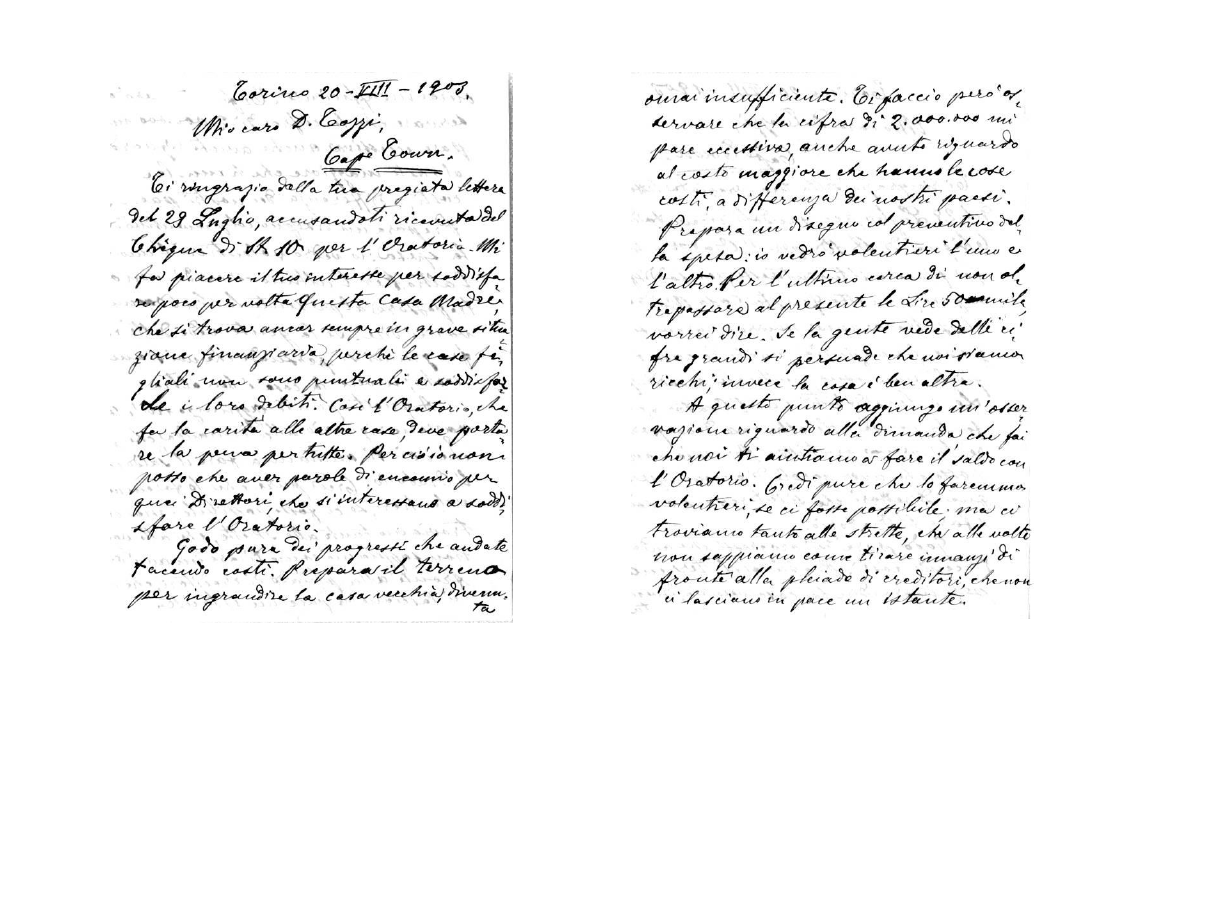 Torino 20-VIII-1903.
Mio caro D. Tozzi,
Cape Town.
Ti ringrazio della tua pregiata lettera
del 29 Luglio, accusandoti ricevuta del
Chèque di St. 10 per l'Oratorio. Mi
fa piacere il tuo interesse per soddisfa-
re poco per volta questa Casa Madre,
che si trova ancor sempre in grave situa-
zione finanziaria, perchè le case fi-
gliali non sono puntuali e soddisfar
i loro debiti. Così l'Oratorio, che
fa la carità alle altre case, deve porta-
re la pena per tutte. Per ciò io non
posso che aver parole di encomio per
quei Direttori, che si interessano a soddi-
sfare l'Oratorio.
Godo pure dei progressi che andate
facendo costì. Prepara il terreno
per ingrandire la casa vecchia, divenu-
ta
omai insufficiente. Ti faccio però os-
servare che la cifra di 2.000.000 mi
pare eccessiva, anche avuto riguardo
al costo maggiore che hanno le cose
costì, a differenza dei nostri paesi.
Prepara un disegno col preventivo del-
la spesa: io vedrò volentieri l'uno e
l'altro. Per l'ultimo cerca di non ol-
trepassare al presente le Lire 50 mila,
vorrei dire. Se la gente vede delle ci-
fre grandi si persuade che noi siamo
ricchi; invece la cosa è ben altra.
A questo punto aggiungo un'osser
vazione riguardo alla dimanda che fai
che noi ti aiutiamo a fare il saldo con
l'Oratorio. Credi pure che lo faremmo
volentieri, se ci fosse possibile; ma ci
troviamo tanto alle strette, che alle volte
non sappiamo come tirare innanzi di
fronte alla pleiade di creditori, che non
ci lasciano in pace un istante.